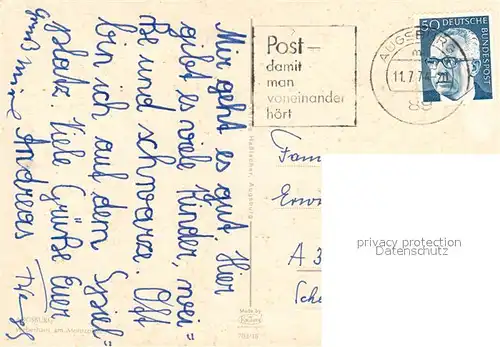 Mir geht es gut. Hier
gibt es viele Kinder, wei=
ße und schwarze. Oft
bin ich auf dem Spiel=
platz. Viele Grüße Euer
Andreas
Post –
damit
man
voneinander
hört
AUGSBURG
11.7.74
89
50 DEUTSCHE
BUNDESPOST
Fam
Erw
A 3
Sche
privacy protection
Datenschutz
Made by